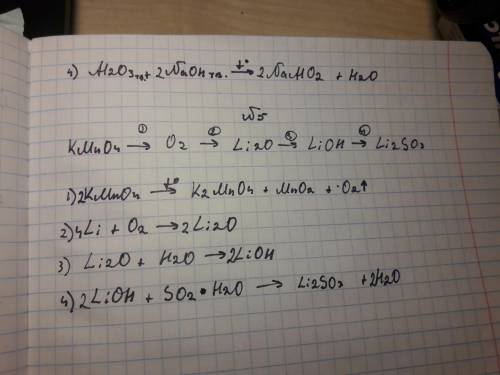 4) Al2O3 тв. + 2NaOH тв. t°→ 2NaAlO2 + H2O
№5
KMnO4 ①→ O2 ②→ Li2O ③→ LiOH ④→ Li2SO3
1) 2KMnO4 t°→ K2MnO4 + MnO2 + O2↑
2) 4Li + O2 → 2Li2O
3) Li2O + H2O → 2LiOH
4) 2LiOH + SO2•H2O → Li2SO3 + 2H2O